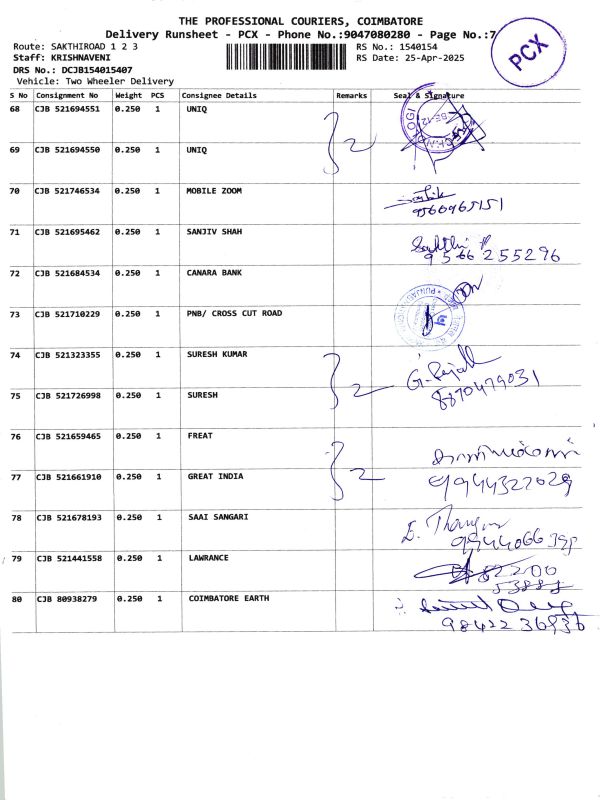 THE PROFESSIONAL COURIERS, COIMBATORE
Delivery Runsheet - PCX - Phone No.:9047080280 - Page No.:7
Route: SAKTHIROAD 1 2 3 RS No.: 1540154
Staff: KRISHNAVENI RS Date: 25-Apr-2025
DRS No.: DCJB154015407
Vehicle: Two Wheeler Delivery
PCX
S No Consignment No Weight PCS Consignee Details Remarks Seal & Signature
68 CJB 521694551 0.250 1 UNIQ
2
69 CJB 521694550 0.250 1 UNIQ
70 CJB 521746534 0.250 1 MOBILE ZOOM
71 CJB 521695462 0.250 1 SANJIV SHAH
9566255296
72 CJB 521684534 0.250 1 CANARA BANK
73 CJB 521710229 0.250 1 PNB/ CROSS CUT ROAD
74 CJB 521323355 0.250 1 SURESH KUMAR
2
8870479031
75 CJB 521726998 0.250 1 SURESH
76 CJB 521659465 0.250 1 FREAT
2
77 CJB 521661910 0.250 1 GREAT INDIA
9944327029
78 CJB 521678193 0.250 1 SAAI SANGARI
79 CJB 521441558 0.250 1 LAWRANCE
80 CJB 80938279 0.250 1 COIMBATORE EARTH
9842236936